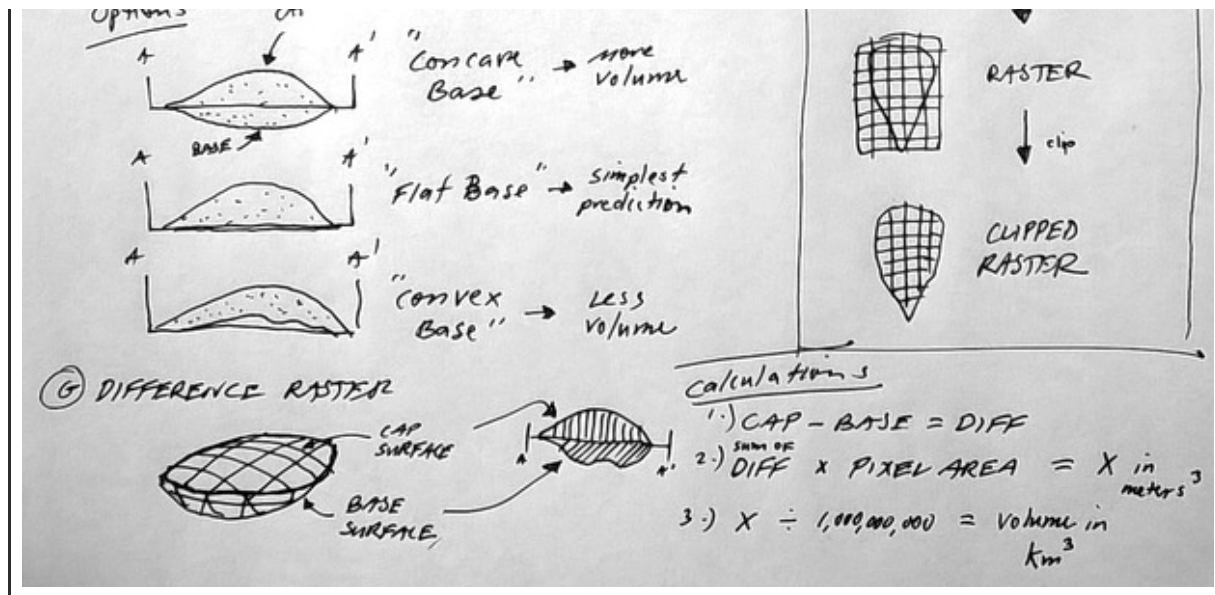 Options
A
A'
"Concave
Base" → more
volume
BASE
A
A'
"Flat Base" → simplest
prediction
A
A'
"Convex
Base" → Less
volume
RASTER
clip
CLIPPED
RASTER
G DIFFERENCE RASTER
CAP
SURFACE
BASE
SURFACE
A
A'
Calculations
1.) CAP - BASE = DIFF
sum of
2.) DIFF x PIXEL AREA = X in
meters³
3.) X ÷ 1,000,000,000 = volume in
km³